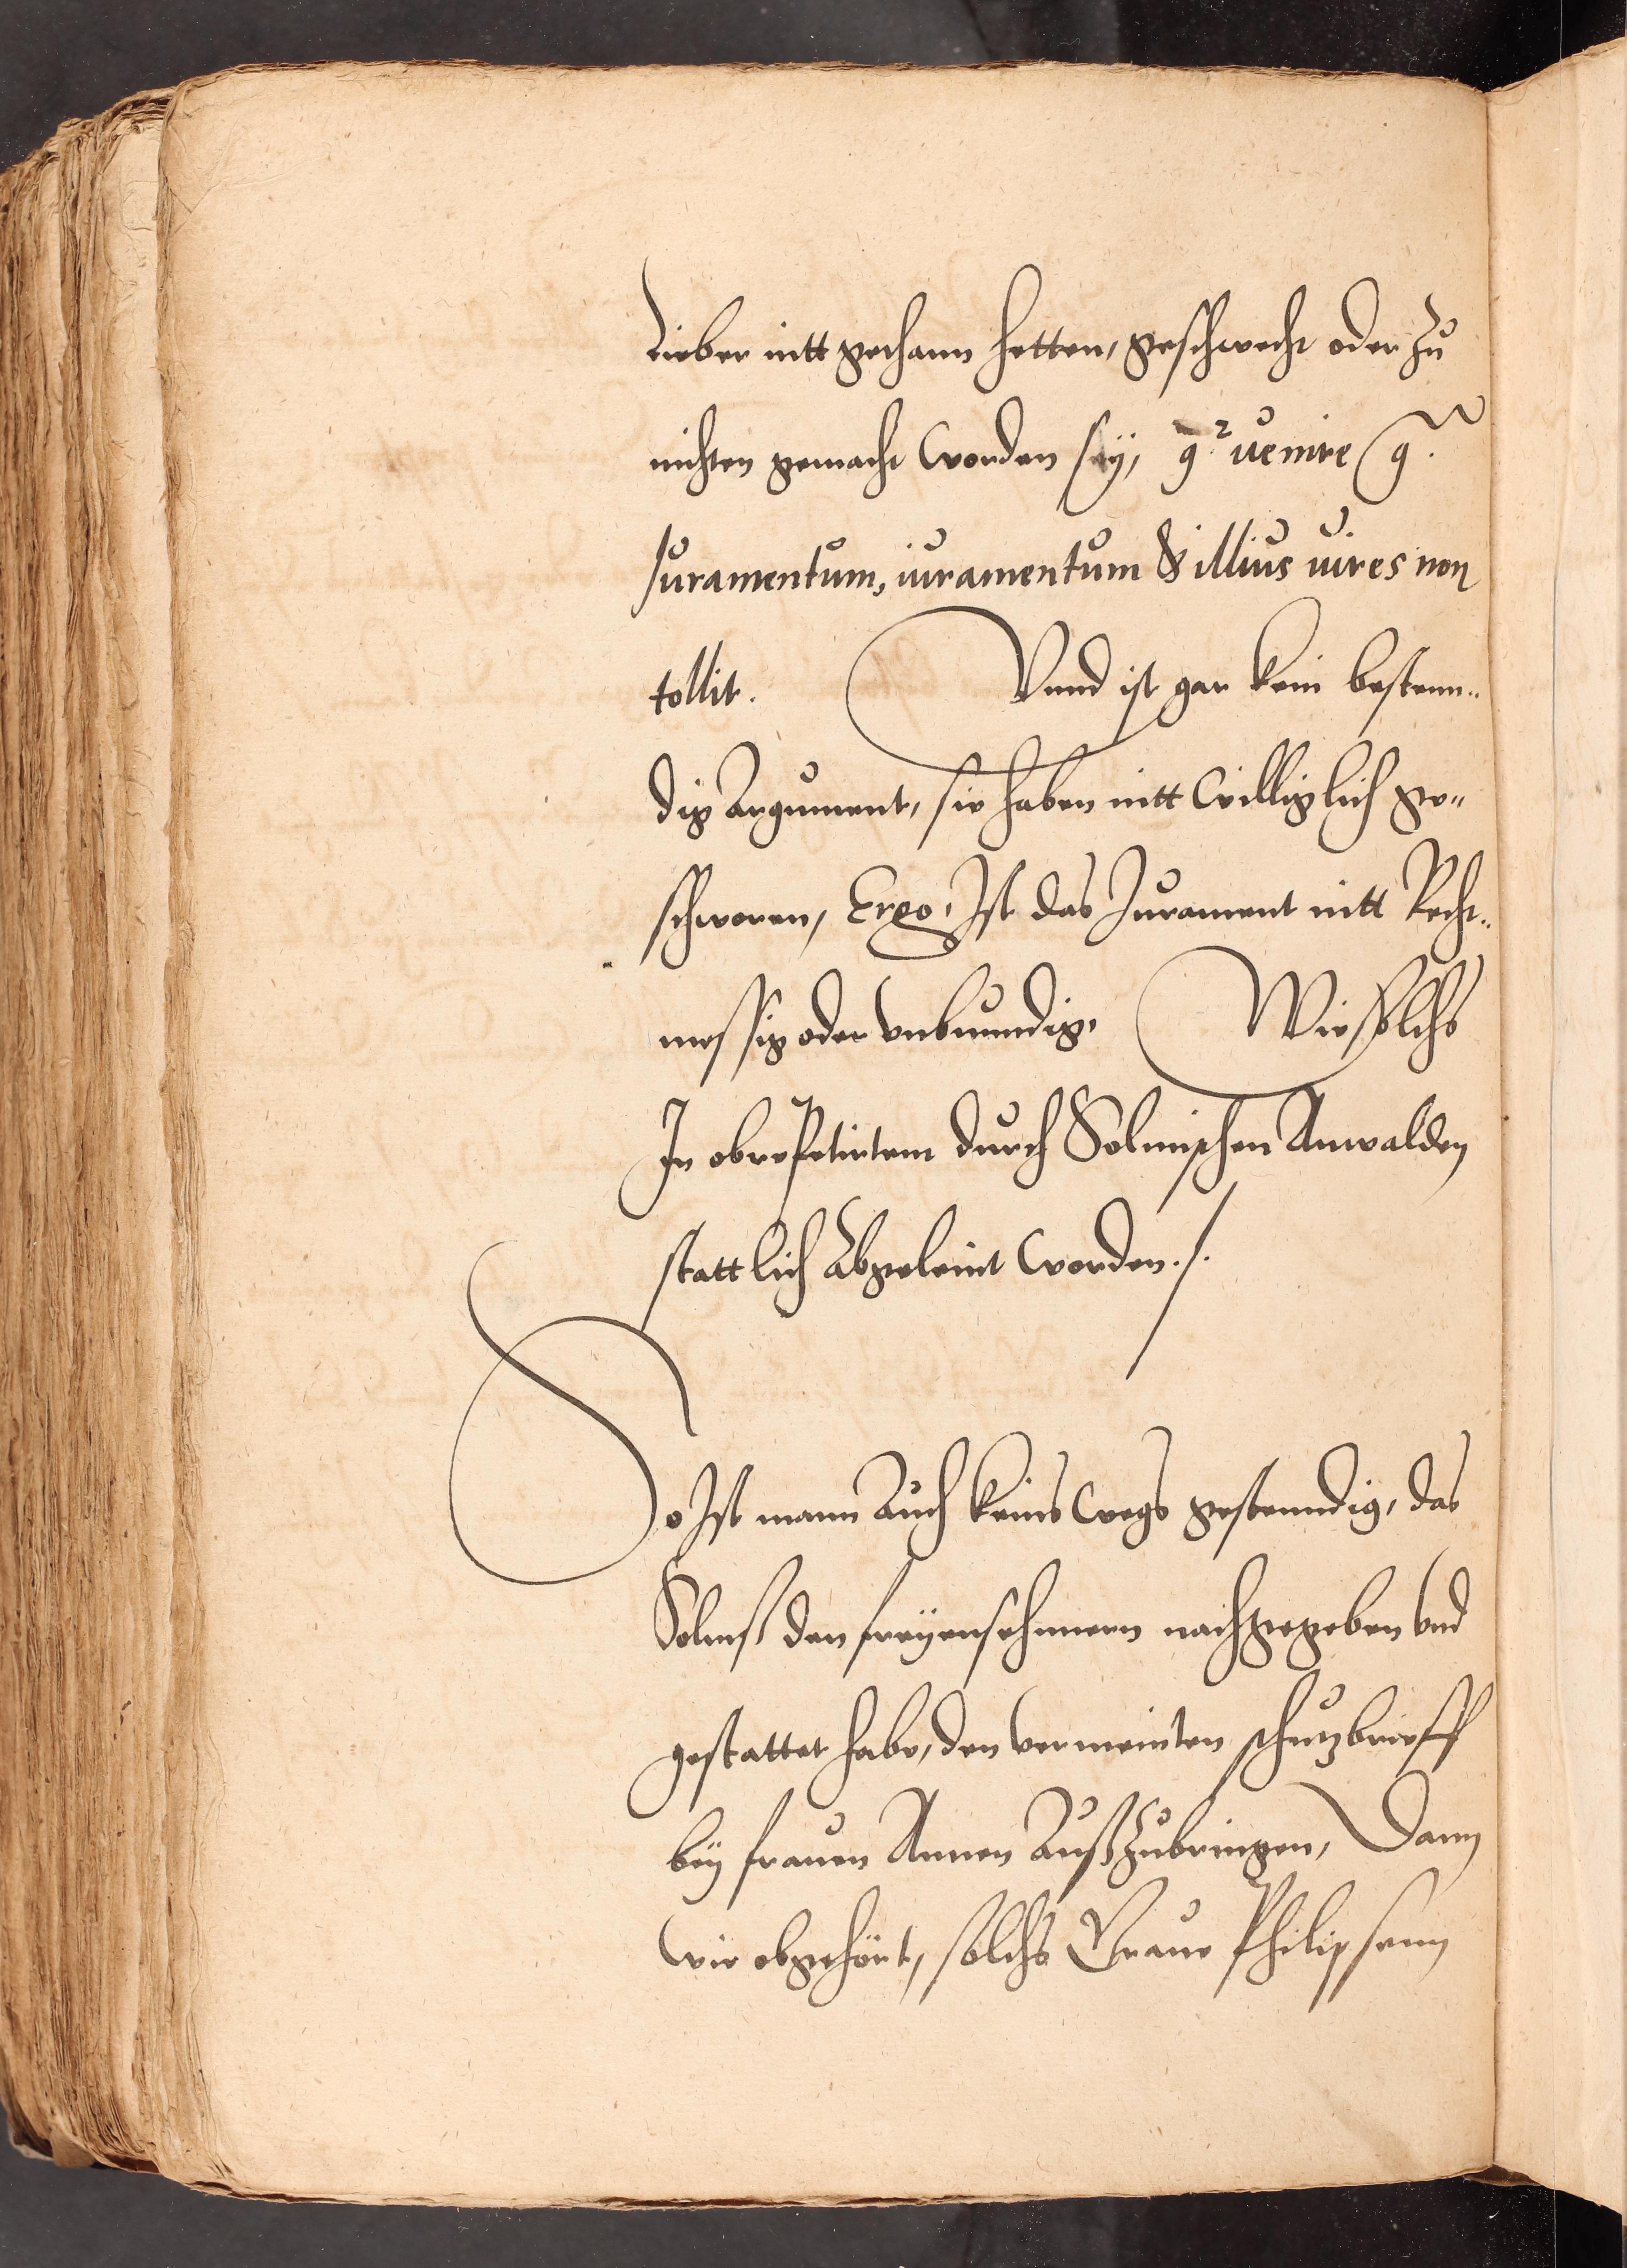 lieber nitt gethann hetten, geschwecht oder zu
nichten gemacht worden sey, quia uenire contra
Iuramentum, iuramentum & illius uires non
tollit. Vnnd ist gar kein bestenn¬
dig Argument, sie haben nitt williglich ge¬
schworen, Ergo, Ist das Jurament nitt Recht¬
messig oder vnbuundig, Wie solchs
In obrepetirtem durch Solmischen Anwalden
stattlich abgeleint worden./.
So Ist mann auch keins wegs gestenndig, das
Solmß den freyensehnnern nachgegeben vnd
gestattet habe, den vermeinten schutzbrieff
bey frauen Annen außzubringen, Dann
wie obgehört, solchs Graue Philipsenn